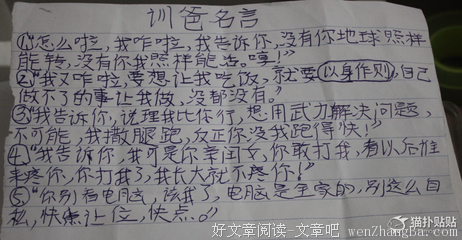 训爸名言
①"怎么啦,我咋啦,我告诉你,没有你地球照样
能转,没有你我照样能活。哼!"
②"我又咋啦,要想让我吃饭,就要以身作则,自己
做不了的事让我做,没都没有。"
③"我告诉你,说理我比你行,想用武力解决问题,
不可能,我撒腿跑,反正你没我跑得快!"
④"我告诉你,我可是你亲闺女,你敢打我,看以后谁
疼你,你打我了,我长大就不疼你!"
⑤"你别看电脑,该我了,电脑是全家的,别这么自
私,快点让位,快点。"
好文章阅读-文章吧 wenZhangBa.com
猫扑贴贴